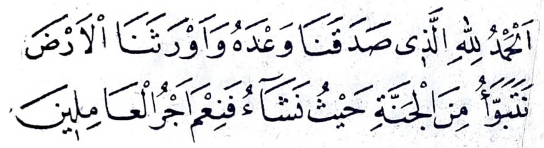 اَلْحَمْدُ لِلّٰهِ الَّذِى صَدَقَنَا وَعْدَهُ وَاَوْرَثَنَا الْاَرْضَ
نَتَبَوَّأُ مِنَ الْجَنَّةِ حَيْثُ نَشَآءُ فَنِعْمَ اَجْرُ الْعَامِلِينَ